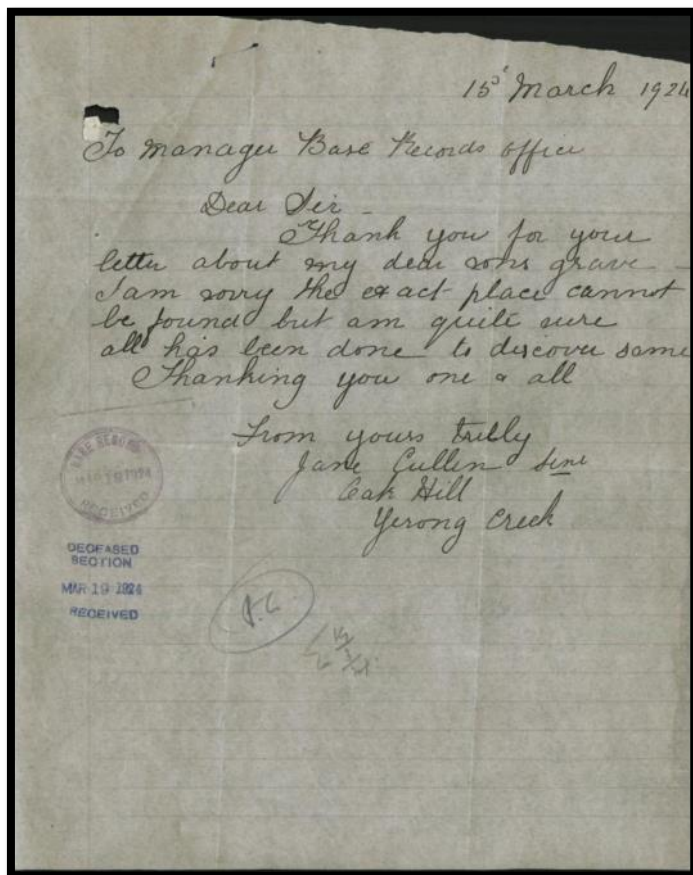 15' March 1924
To Manager Base Records office
Dear Sir -
Thank you for your
letter about my dear sons grave -
I am sorry the exact place cannot
be found but am quite sure
all has been done to discover same
Thanking you one & all
From yours trully
Jane Cullen Senr
Oak Hill
Yerong Creek
BASE RECORDS
MAR 19 1924
RECEIVED
DECEASED
SECTION
MAR 19 1924
RECEIVED